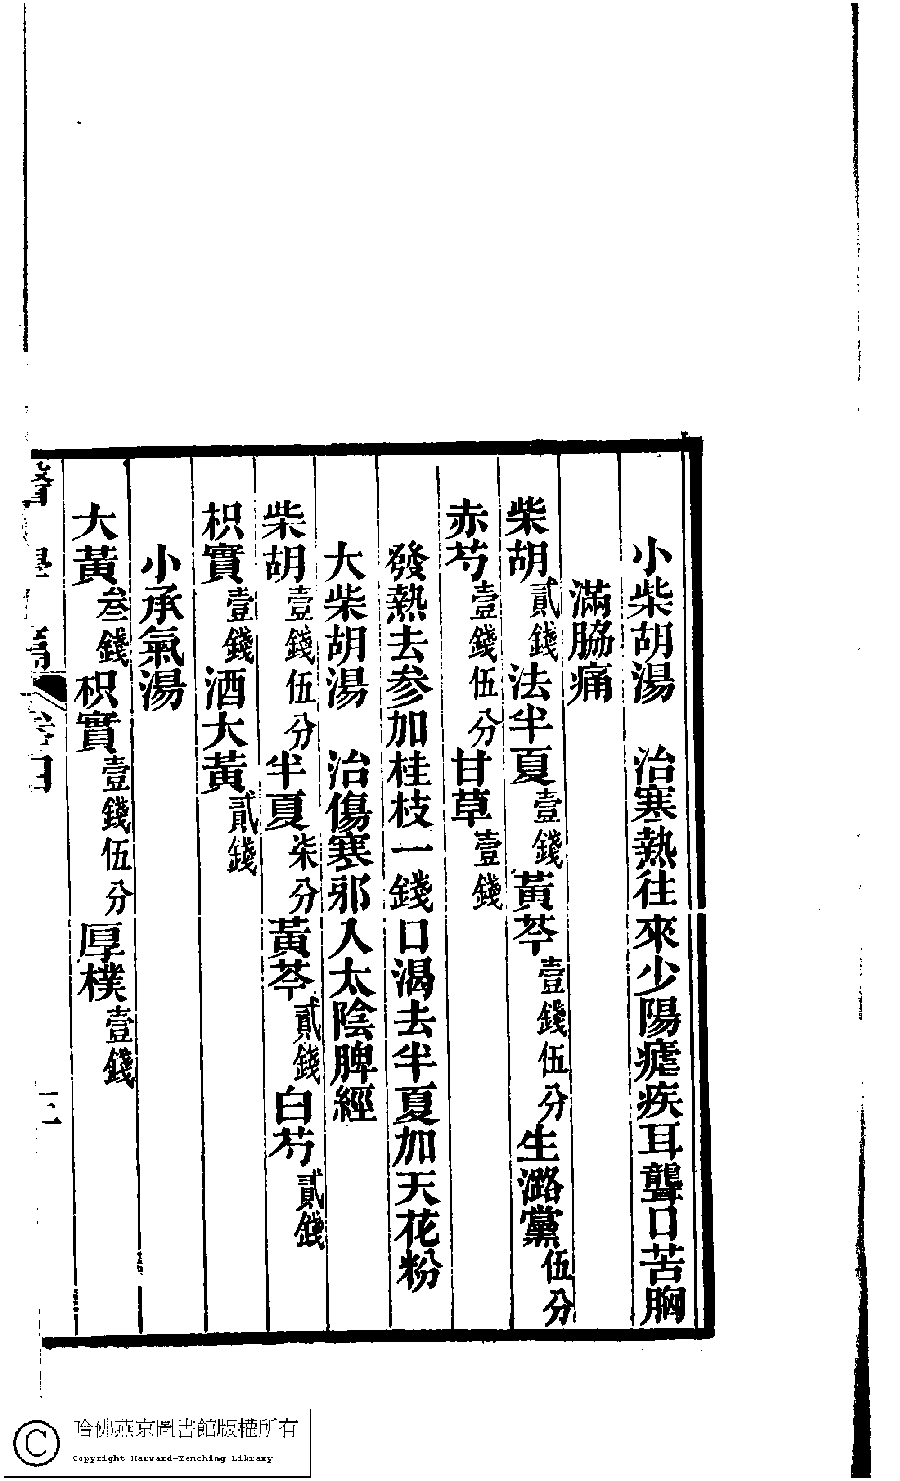 小柴胡湯　治寒熱往來少陽瘧疾耳聾口苦胸
滿脇痛
柴胡貳錢法半夏壹錢黃芩壹錢伍分生潞黨伍分
赤芍壹錢伍分甘草壹錢
發熱去参加桂枝一錢口渴去半夏加天花粉
大柴胡湯　治傷寒邪入太陰脾經
柴胡壹錢伍分半夏柒分黃芩貳錢白芍貳錢
枳實壹錢酒大黃貳錢
小承氣湯
大黃叁錢枳實壹錢伍分厚樸壹錢
三
哈佛燕京圖書館版權所有
Copyright Harvard-Yenching Library